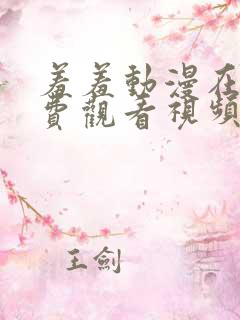 羞羞動漫在
費觀看視頻
王劍